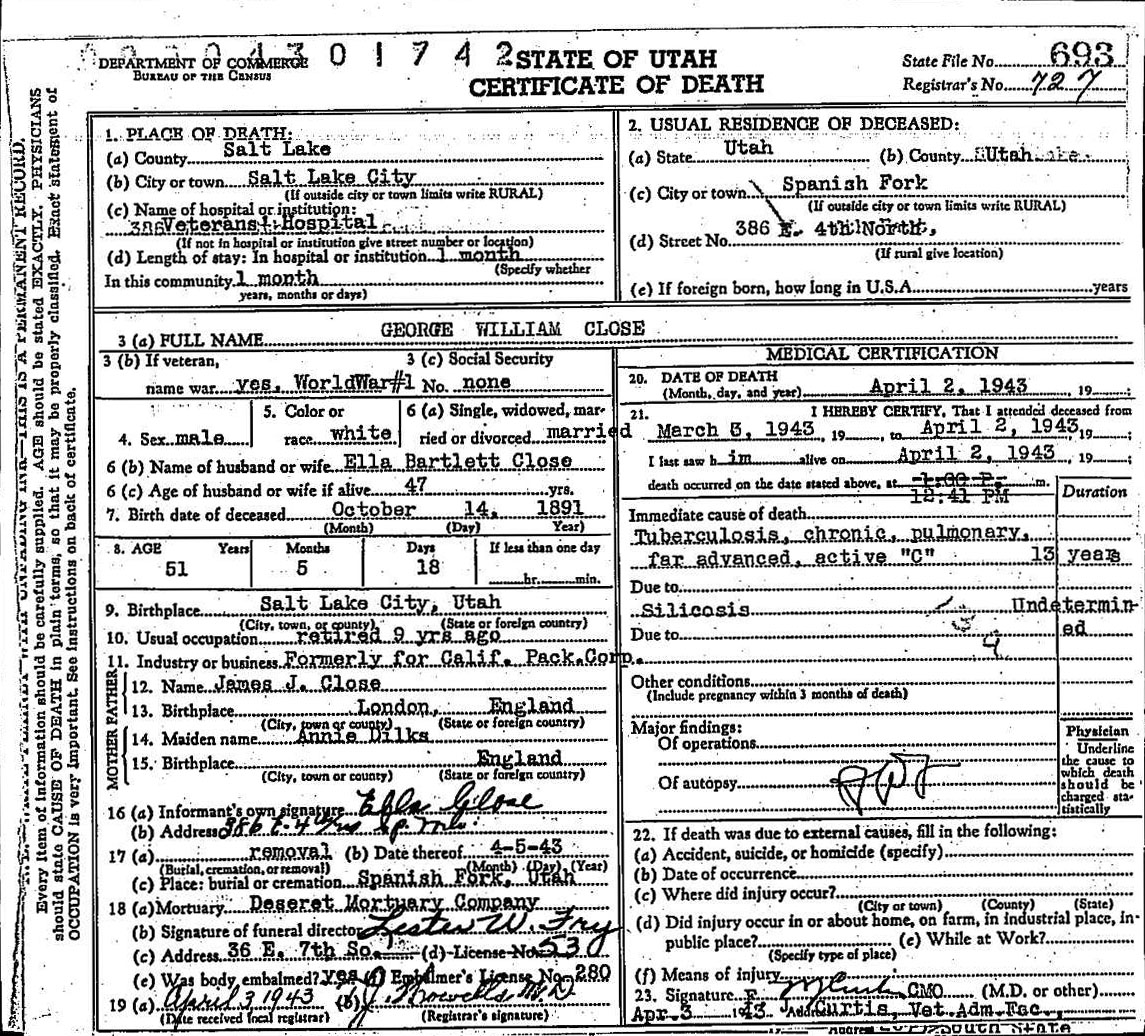 0 4 3 0 1 7 4 2
DEPARTMENT OF COMMERCE
BUREAU OF THE CENSUS
STATE OF UTAH
CERTIFICATE OF DEATH
State File No. 693
Registrar's No. 727
Every item of information should be carefully supplied. AGE should be stated EXACTLY. PHYSICIANS
should state CAUSE OF DEATH in plain terms, so that it may be properly classified. Exact statement of
OCCUPATION is very important. See instructions on back of certificate.
THIS IS A PERMANENT RECORD.
1. PLACE OF DEATH:
(a) County Salt Lake
(b) City or town Salt Lake City
(If outside city or town limits write RURAL)
(c) Name of hospital or institution:
Veterans' Hospital
(If not in hospital or institution give street number or location)
(d) Length of stay: In hospital or institution 1 month
(Specify whether
In this community 1 month
years, months or days)
2. USUAL RESIDENCE OF DECEASED:
(a) State Utah (b) County Utah
(c) City or town Spanish Fork
(If outside city or town limits write RURAL)
(d) Street No. 386 E. 4th North,
(If rural give location)
(e) If foreign born, how long in U.S.A. years
3 (a) FULL NAME GEORGE WILLIAM CLOSE
3 (b) If veteran, 3 (c) Social Security
name war yes, WorldWar#1 No. none
5. Color or 6 (a) Single, widowed, mar-
4. Sex male race white ried or divorced married
6 (b) Name of husband or wife Ella Bartlett Close
6 (c) Age of husband or wife if alive 47 yrs.
7. Birth date of deceased October 14, 1891
(Month) (Day) Year)
8. AGE Years Months Days If less than one day
51 5 18 hr. min.
9. Birthplace Salt Lake City, Utah
(City, town, or county) (State or foreign country)
10. Usual occupation retired 9 yrs ago
11. Industry or business Formerly for Calif. Pack.Corp.
FATHER
12. Name James J. Close
13. Birthplace London, England
(City, town or county) (State or foreign country)
MOTHER
14. Maiden name Annie Dilks
15. Birthplace England
(City, town or county) (State or foreign country)
16 (a) Informant's own signature Ella Close
(b) Address 386 E. 4
17 (a) removal (b) Date thereof 4-5-43
(Burial, cremation, or removal) (Month) (Day) (Year)
(c) Place: burial or cremation Spanish Fork, Utah
18 (a) Mortuary Deseret Mortuary Company
(b) Signature of funeral director Lester W. Fry
(c) Address 36 E. 7th So. (d) License No. 530
(e) Was body embalmed? yes (f) Embalmer's License No. 280
19 (a) April 3 1943 (b) M.D.
(Date received local registrar) (Registrar's signature)
MEDICAL CERTIFICATION
20. DATE OF DEATH
(Month, day, and year) April 2, 1943 , 19 ;
21. I HEREBY CERTIFY, That I attended deceased from
March 3, 1943 , 19 , to April 2, 1943, 19 ;
I last saw h im alive on April 2, 1943 , 19 ;
death occurred on the date stated above, at 1:00 P. m.
12:41 PM
Duration
Immediate cause of death
Tuberculosis, chronic, pulmonary,
far advanced, active "C" 13 years
Due to
Silicosis Undetermin-
Due to ed
Other conditions
(Include pregnancy within 3 months of death)
Major findings:
Of operations
Of autopsy
Physician
Underline
the cause to
which death
should be
charged sta-
tistically
22. If death was due to external causes, fill in the following:
(a) Accident, suicide, or homicide (specify)
(b) Date of occurrence
(c) Where did injury occur?
(City or town) (County) (State)
(d) Did injury occur in or about home, on farm, in industrial place, in
public place? (e) While at Work?
(Specify type of place)
(f) Means of injury
23. Signature F. CMO (M.D. or other)
Apr. 3 1943 J. Curtis, Vet. Adm. Fac.,
South State